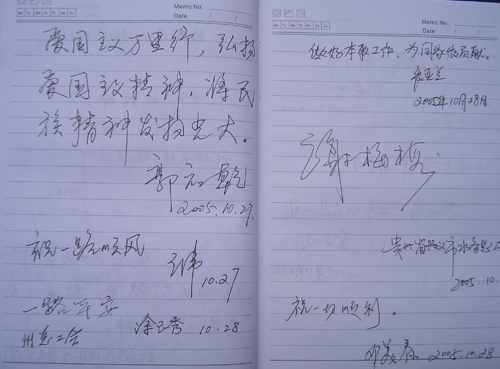 Memo No.
Date
爱国主义万里行，弘扬
爱国主义精神，将民
族精神发扬光大。
2005.10.27
祝一路顺风
10.27
一路平安
涂玉秀 10.28
州总工会
Memo No.
Date
做好本职工作，为国家做贡献。
2005年10月28日
谢梅
贵州省兴义市
2005.10.
祝一切顺利。
邓 2005.10.28